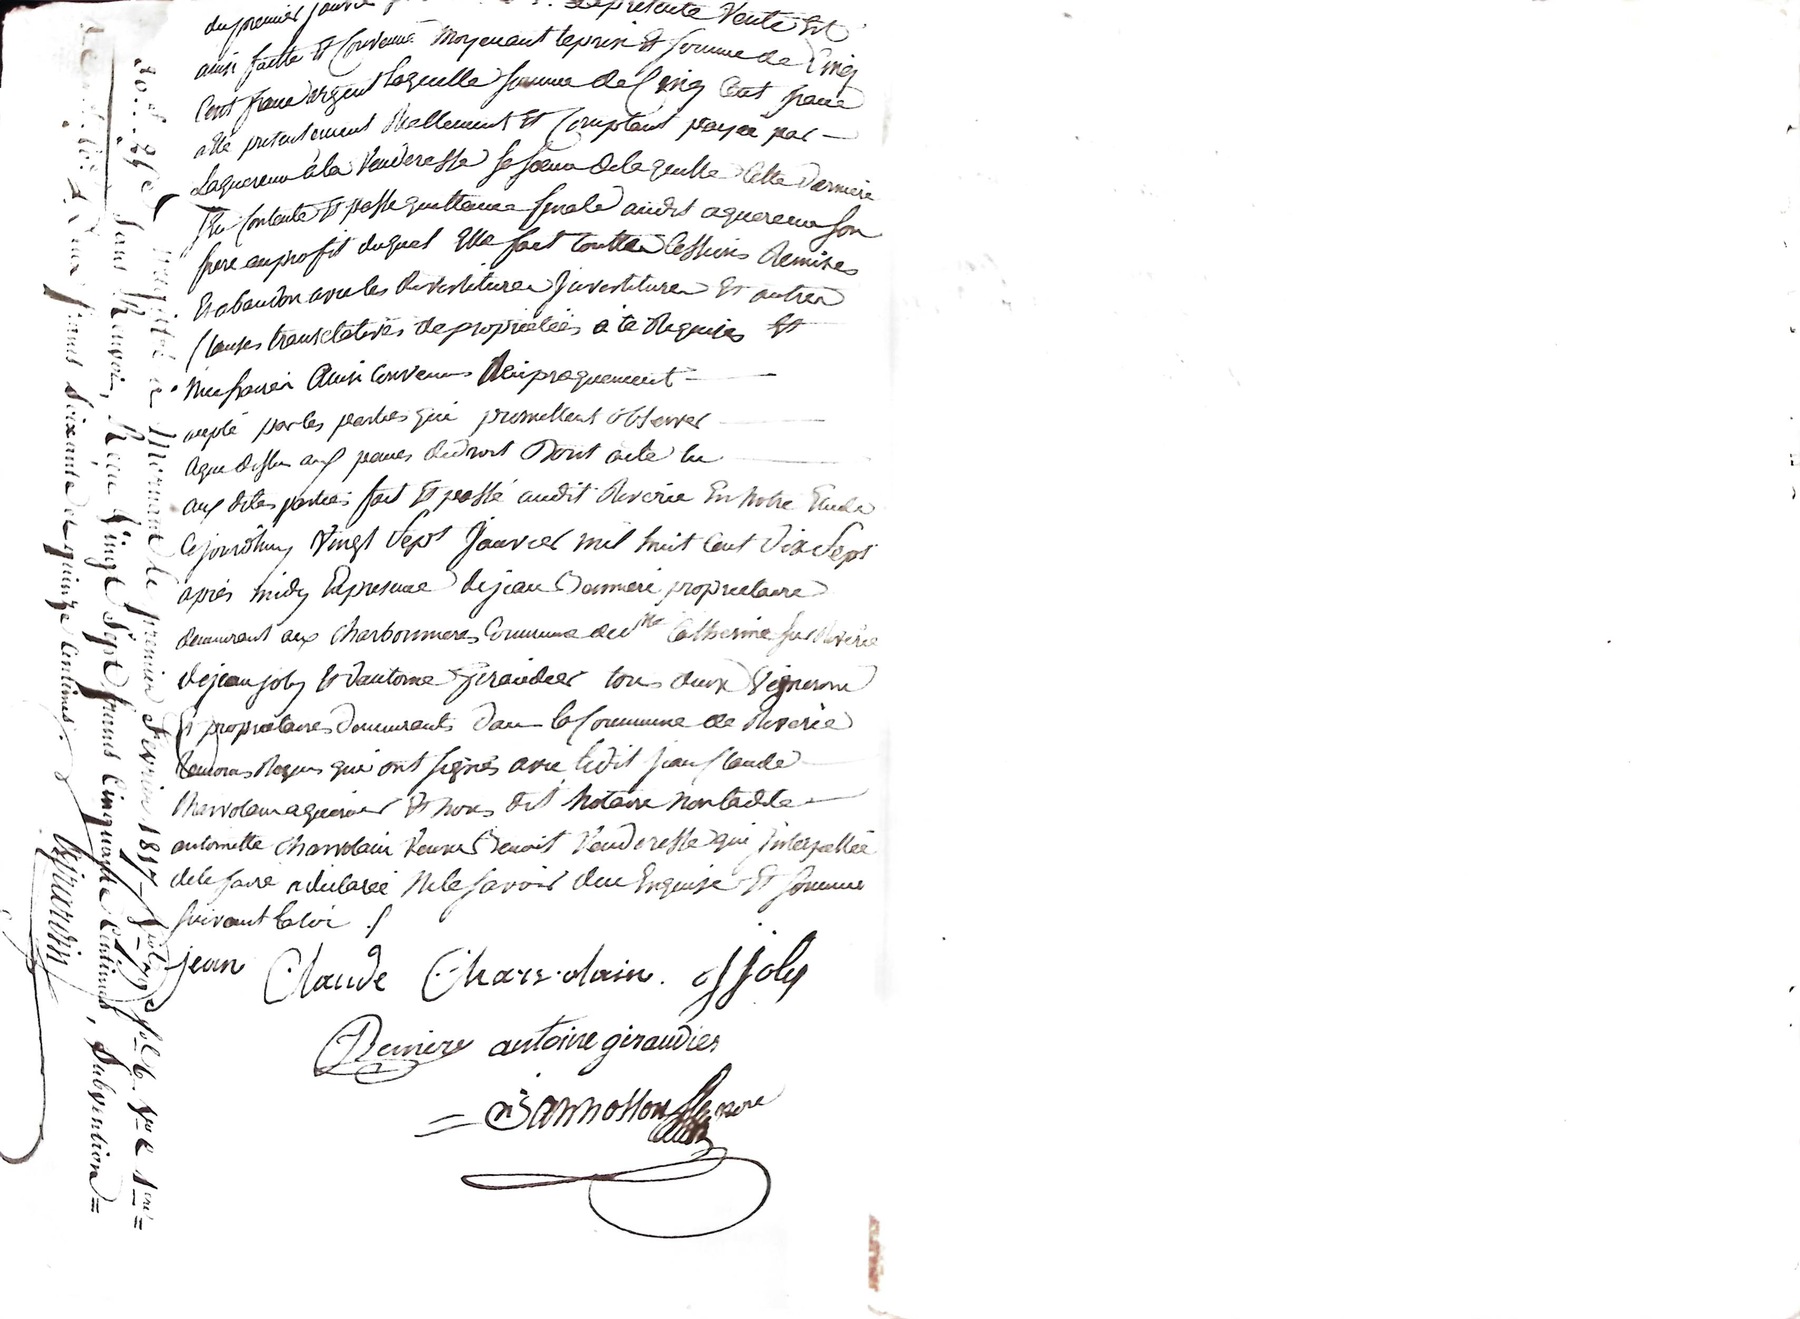 du premier janvier La presente Vente Est
ainsi faitte Et Convenue moyenant le prix Et somme de Cinq
Cent franc argent laquelle somme de Cinq Cent franc
a été presentement Reellement Et Comptant payée par
Laquereur a la Venderesse sa soeur de laquelle Cette derniere
Est Contente Et passe quittance finale audit aquereur son
frere au profit duquel Elle fait touttes Cessions Remises
Et abandon avec les devestitures Investitures Et autres
Clauses translatives de proprietées a ce Requises Et
Necessaires Ainsi Convenus Reciproquement
acepté par les parties qui promettent observer
a que dessus aux peines de droit Dont acte lu
aux dites parties fait Et passé audit Riverie En notre Etude
Cejourdhuy Vingt Sept Janvier mil huit Cent Dix Sept
apres midy En presence de jean proprietaire
demeurant aux Charbonnieres Commune de Ste Catherine sur Riverie
de jean joly Et dantoine Giraudier tous deux Vignerons
Et proprietaires demeurants dans la Commune de Riverie
temoins Requis qui ont signés avec ledit jean Claude
Charvolain aquereur Et nous dit Notaire non ladite
antoinette Charvolain Veuve Benoit Venderesse qui Interpellée
de le faire a declarée Ne le savoir de ce Enquise Et sommée
suivant la loi
jean Claude Charvolain. joly
antoine giraudier
Enregistré a Mornant le premier Fevrier 1817
sans Renvoi, Reçu Vingt Sept francs Cinquante Centimes, Subvention =
Deux francs Soixante et quinze Centimes